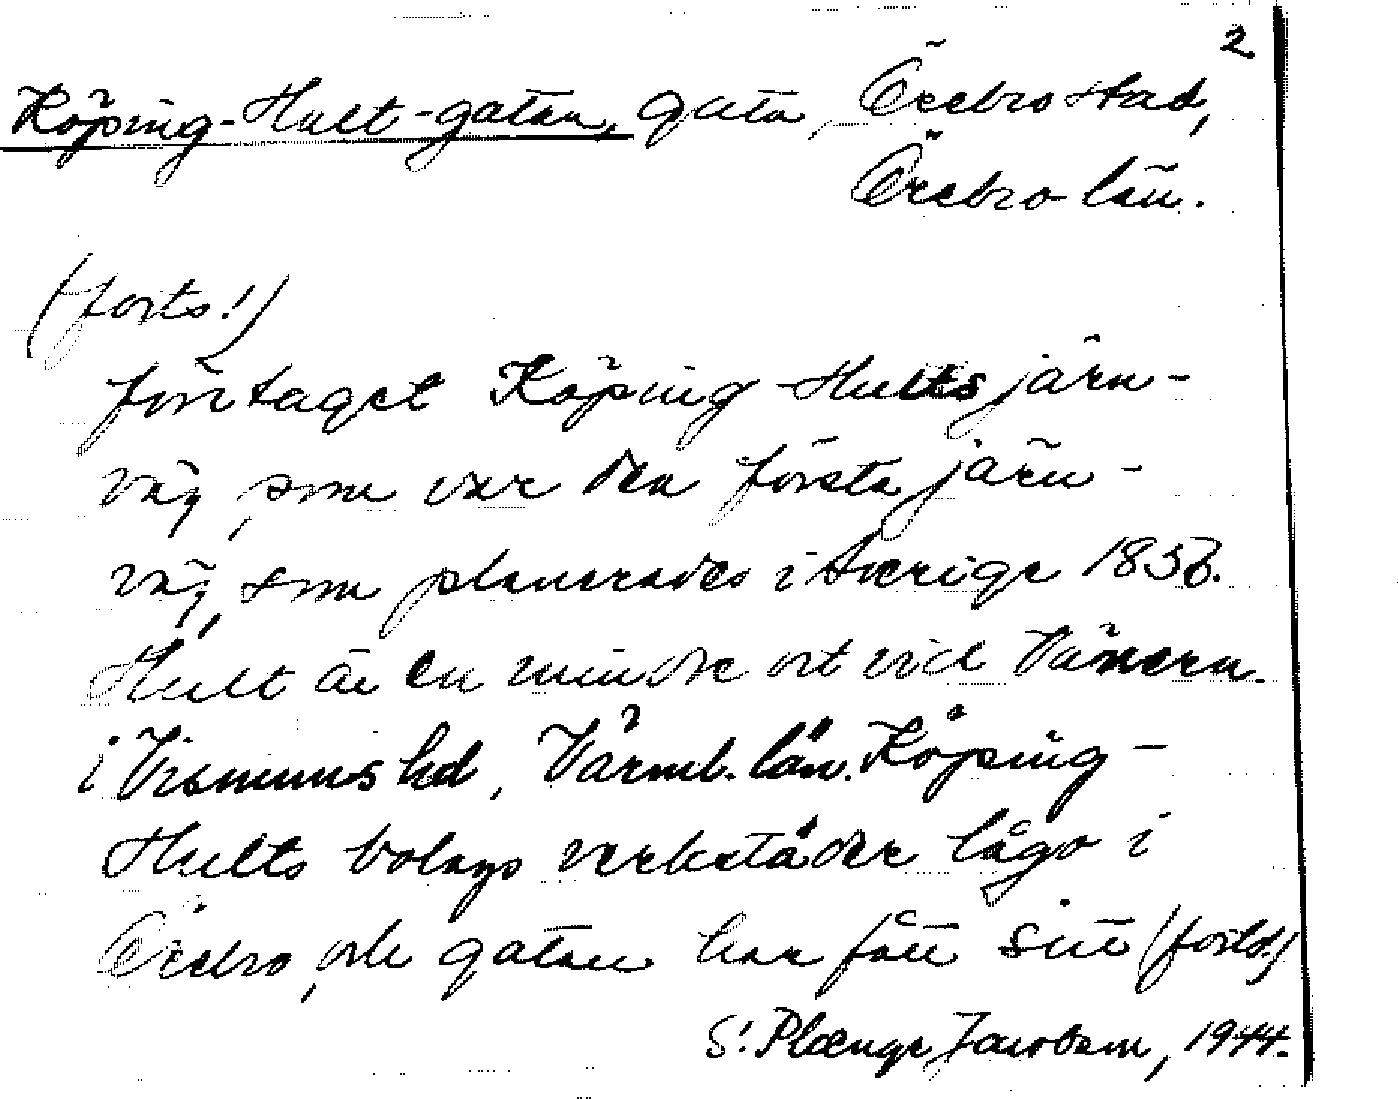 2
Köping-Hult-gatan, gata, Örebro stad,
Örebro län.
(forts!)
företaget Köping-Hults järn-
väg, som var den första järn-
väg, som planerades i Sverige 185
Hult är en mindre ort vid Vänern.
i Visnums hd, Värml. län. Köping-
Hults bolags verkstäder lågo i
Örebro, och gatan har fått sitt (forts!)
S. Plænge Jacobson, 1944.